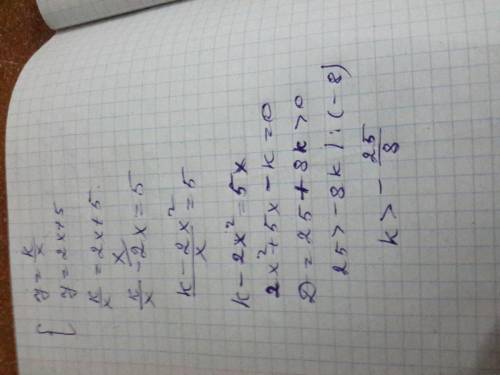 { y = k/x
y = 2x+5
k/x = 2x+5
k/x - 2x/x = 5
(k - 2x²)/x = 5
k - 2x² = 5x
2x² + 5x - k = 0
D = 25 + 8k > 0
25 > -8k | : (-8)
k > - 25/8